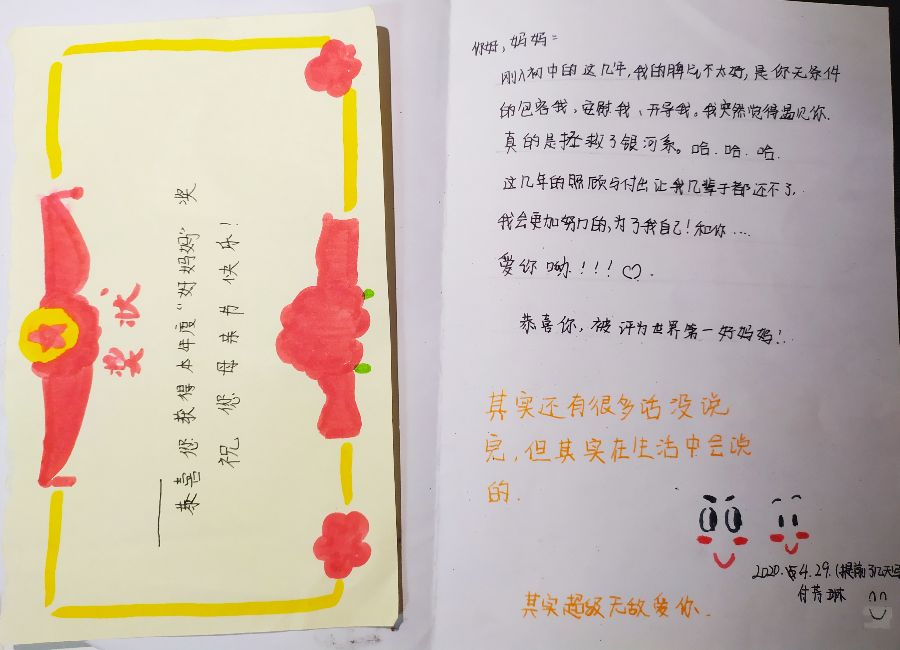 奖状
恭喜您获得本年度“好妈妈”奖
祝您母亲节快乐！
你好，妈妈：
刚入初中的这几年，我的脾气不太好，是你无条件
的包容我、安慰我、开导我。我突然觉得遇见你.
真的是拯救了银河系。哈.哈.哈.
这几年的照顾与付出让我几辈子都还不了.
我会更加努力的，为了我自己！和你....
爱你呦！！！♡.
恭喜你，被评为世界第一好妈妈！
其实还有很多话没说
完，但其实在生活中会说
的.
其实超级无敌爱你.
2020.4.29.(提前
付